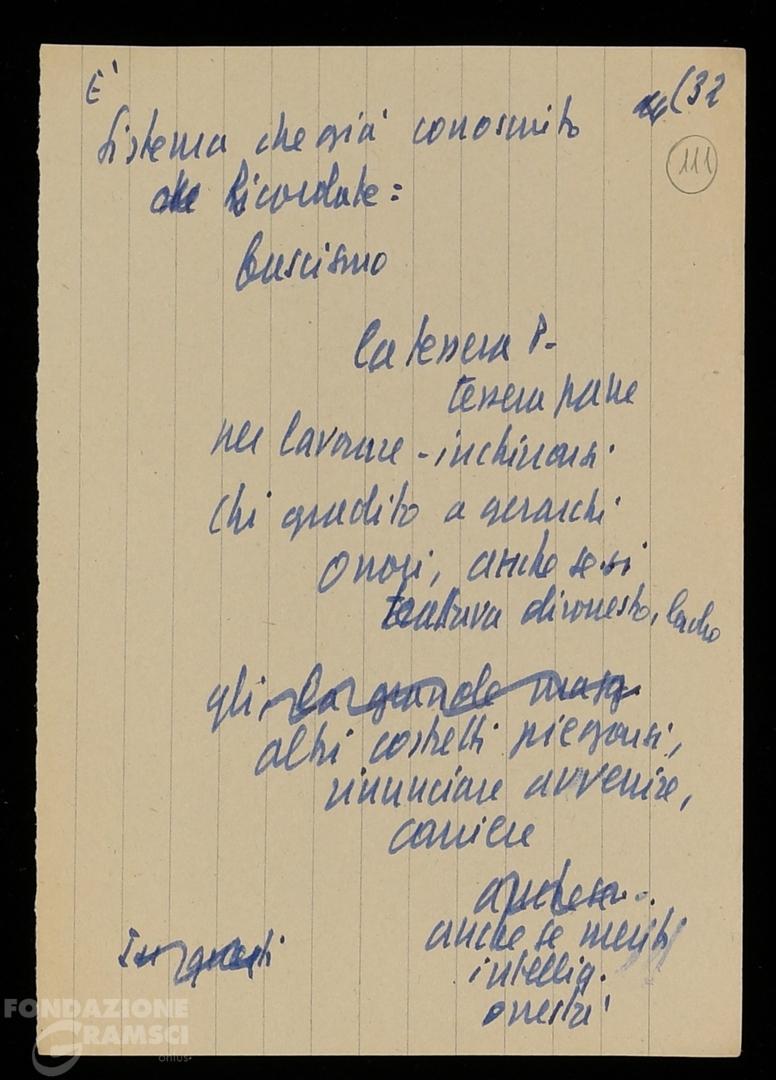 E'
(32
Sistema che già conosciuto
111
Ricordate:
fascismo
la tessera P-
tessera pane
per lavorare - inchinarsi
chi gradito a gerarchi
onori, anche se si
trattava disonesto, ladro
gli la grande massa
altri costretti piegarsi,
rinunciare avvenire,
carriere
anche se
anche se meriti
In questi
intellig.
onestà
FONDAZIONE
GRAMSCI
onlus